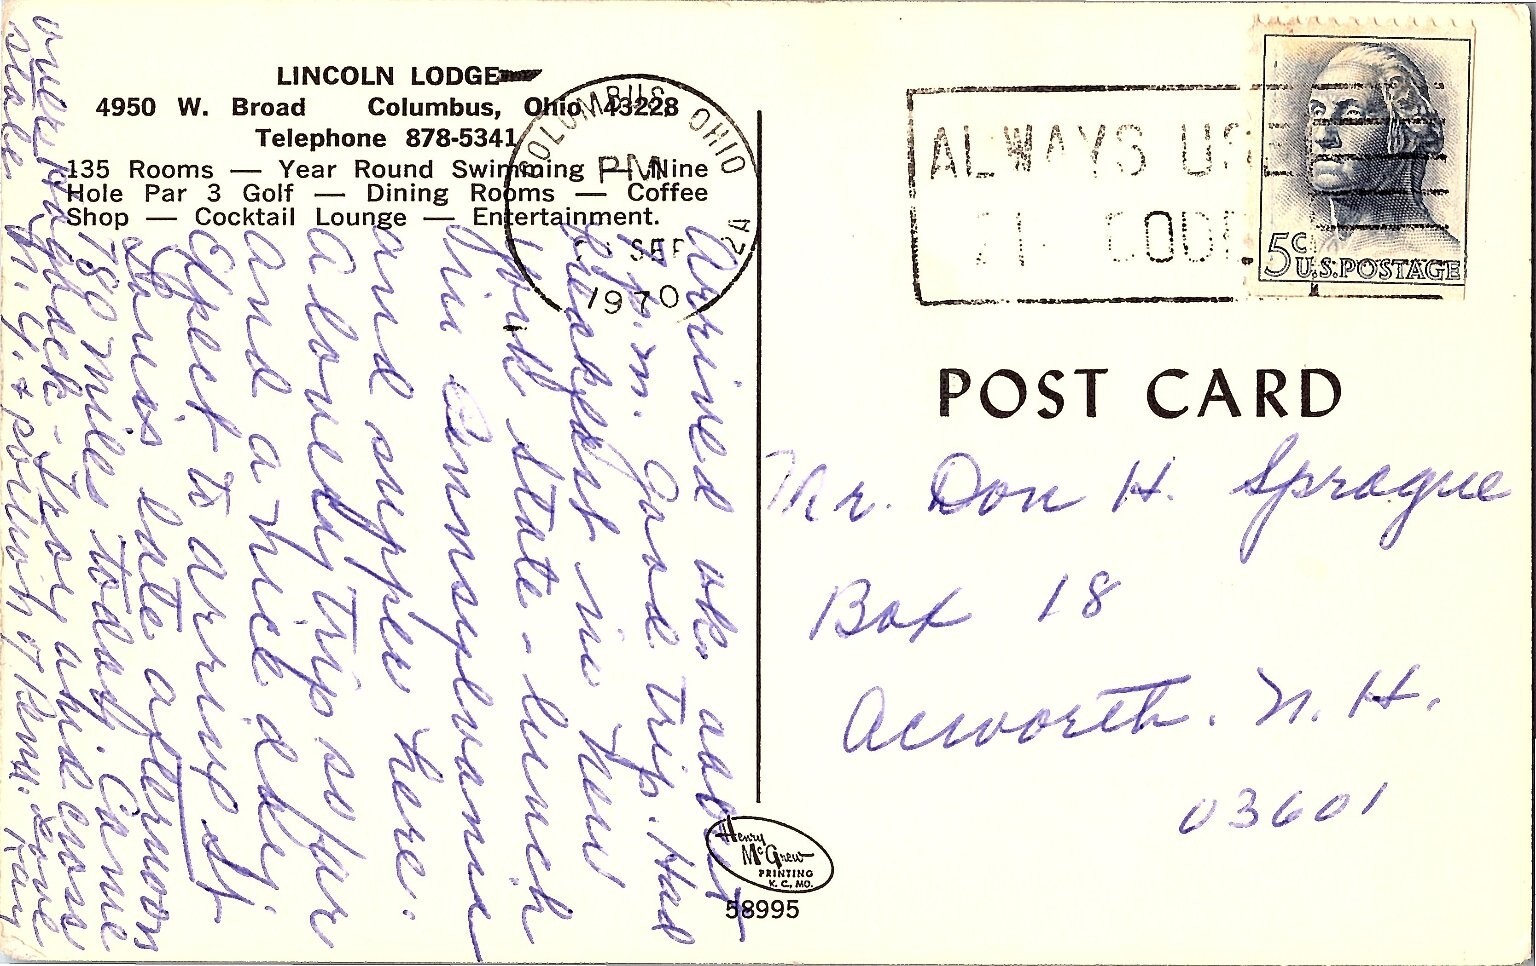 LINCOLN LODGE
4950 W. Broad Columbus, Ohio 43228
Telephone 878-5341
135 Rooms — Year Round Swimming — Nine
Hole Par 3 Golf — Dining Rooms — Coffee
Shop — Cocktail Lounge — Entertainment.
Arrived ok about
7 p.m. Good trip. Had
breakfast in New
York state - lunch
in Pennsylvania
and supper here.
A lovely trip so far
and a nice day.
Expect to arrive St
Louis late afternoon
780 miles today. Came
over Hogback - Troy and cross
state N.Y. & portion of Penna. Love
Kay
COLUMBUS, OHIO
PM
SEP
1970
2A
ALWAYS USE
ZIP CODE
5¢ U.S. POSTAGE
POST CARD
Mr. Don H. Sprague
Box 18
Acworth. N. H.
03601
Henry
McGrew
PRINTING
K. C., MO.
58995